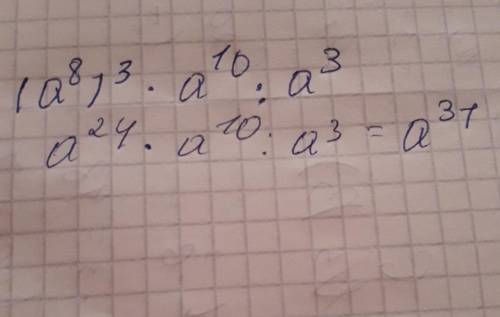 (a⁸)³ · a¹⁰ : a³
a²⁴ · a¹⁰ : a³ = a³¹